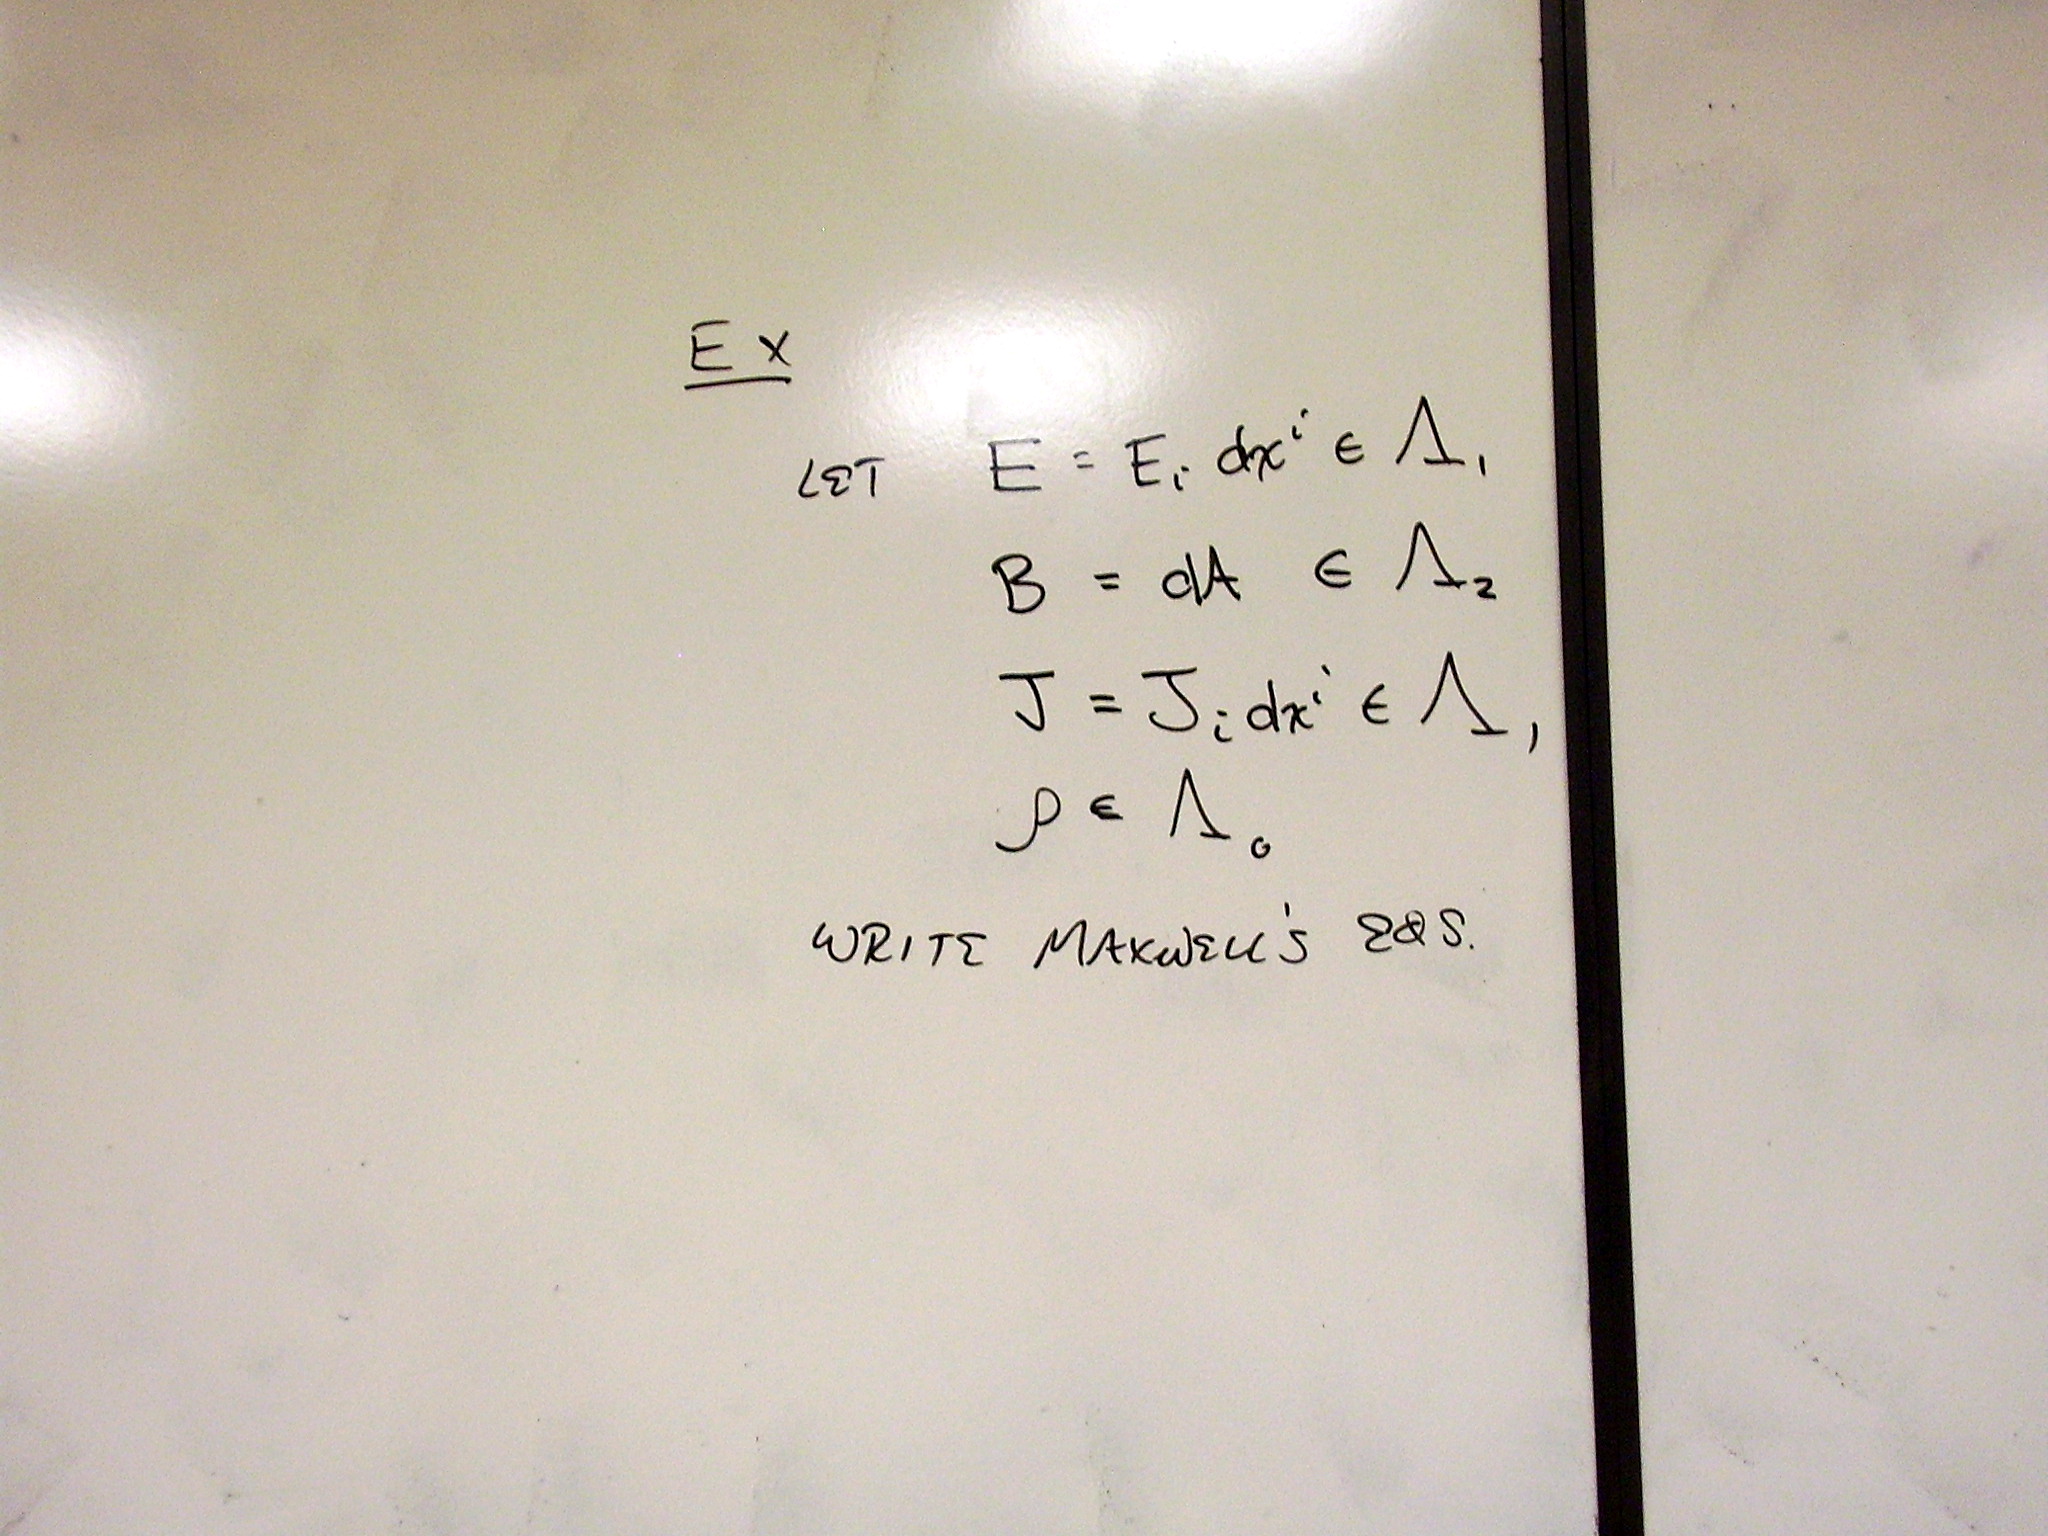 Ex
LET E = Eᵢ dxⁱ ∈ Λ₁
B = dA ∈ Λ₂
J = Jᵢ dxⁱ ∈ Λ₁
ρ ∈ Λ₀
WRITE MAXWELL'S EQS.